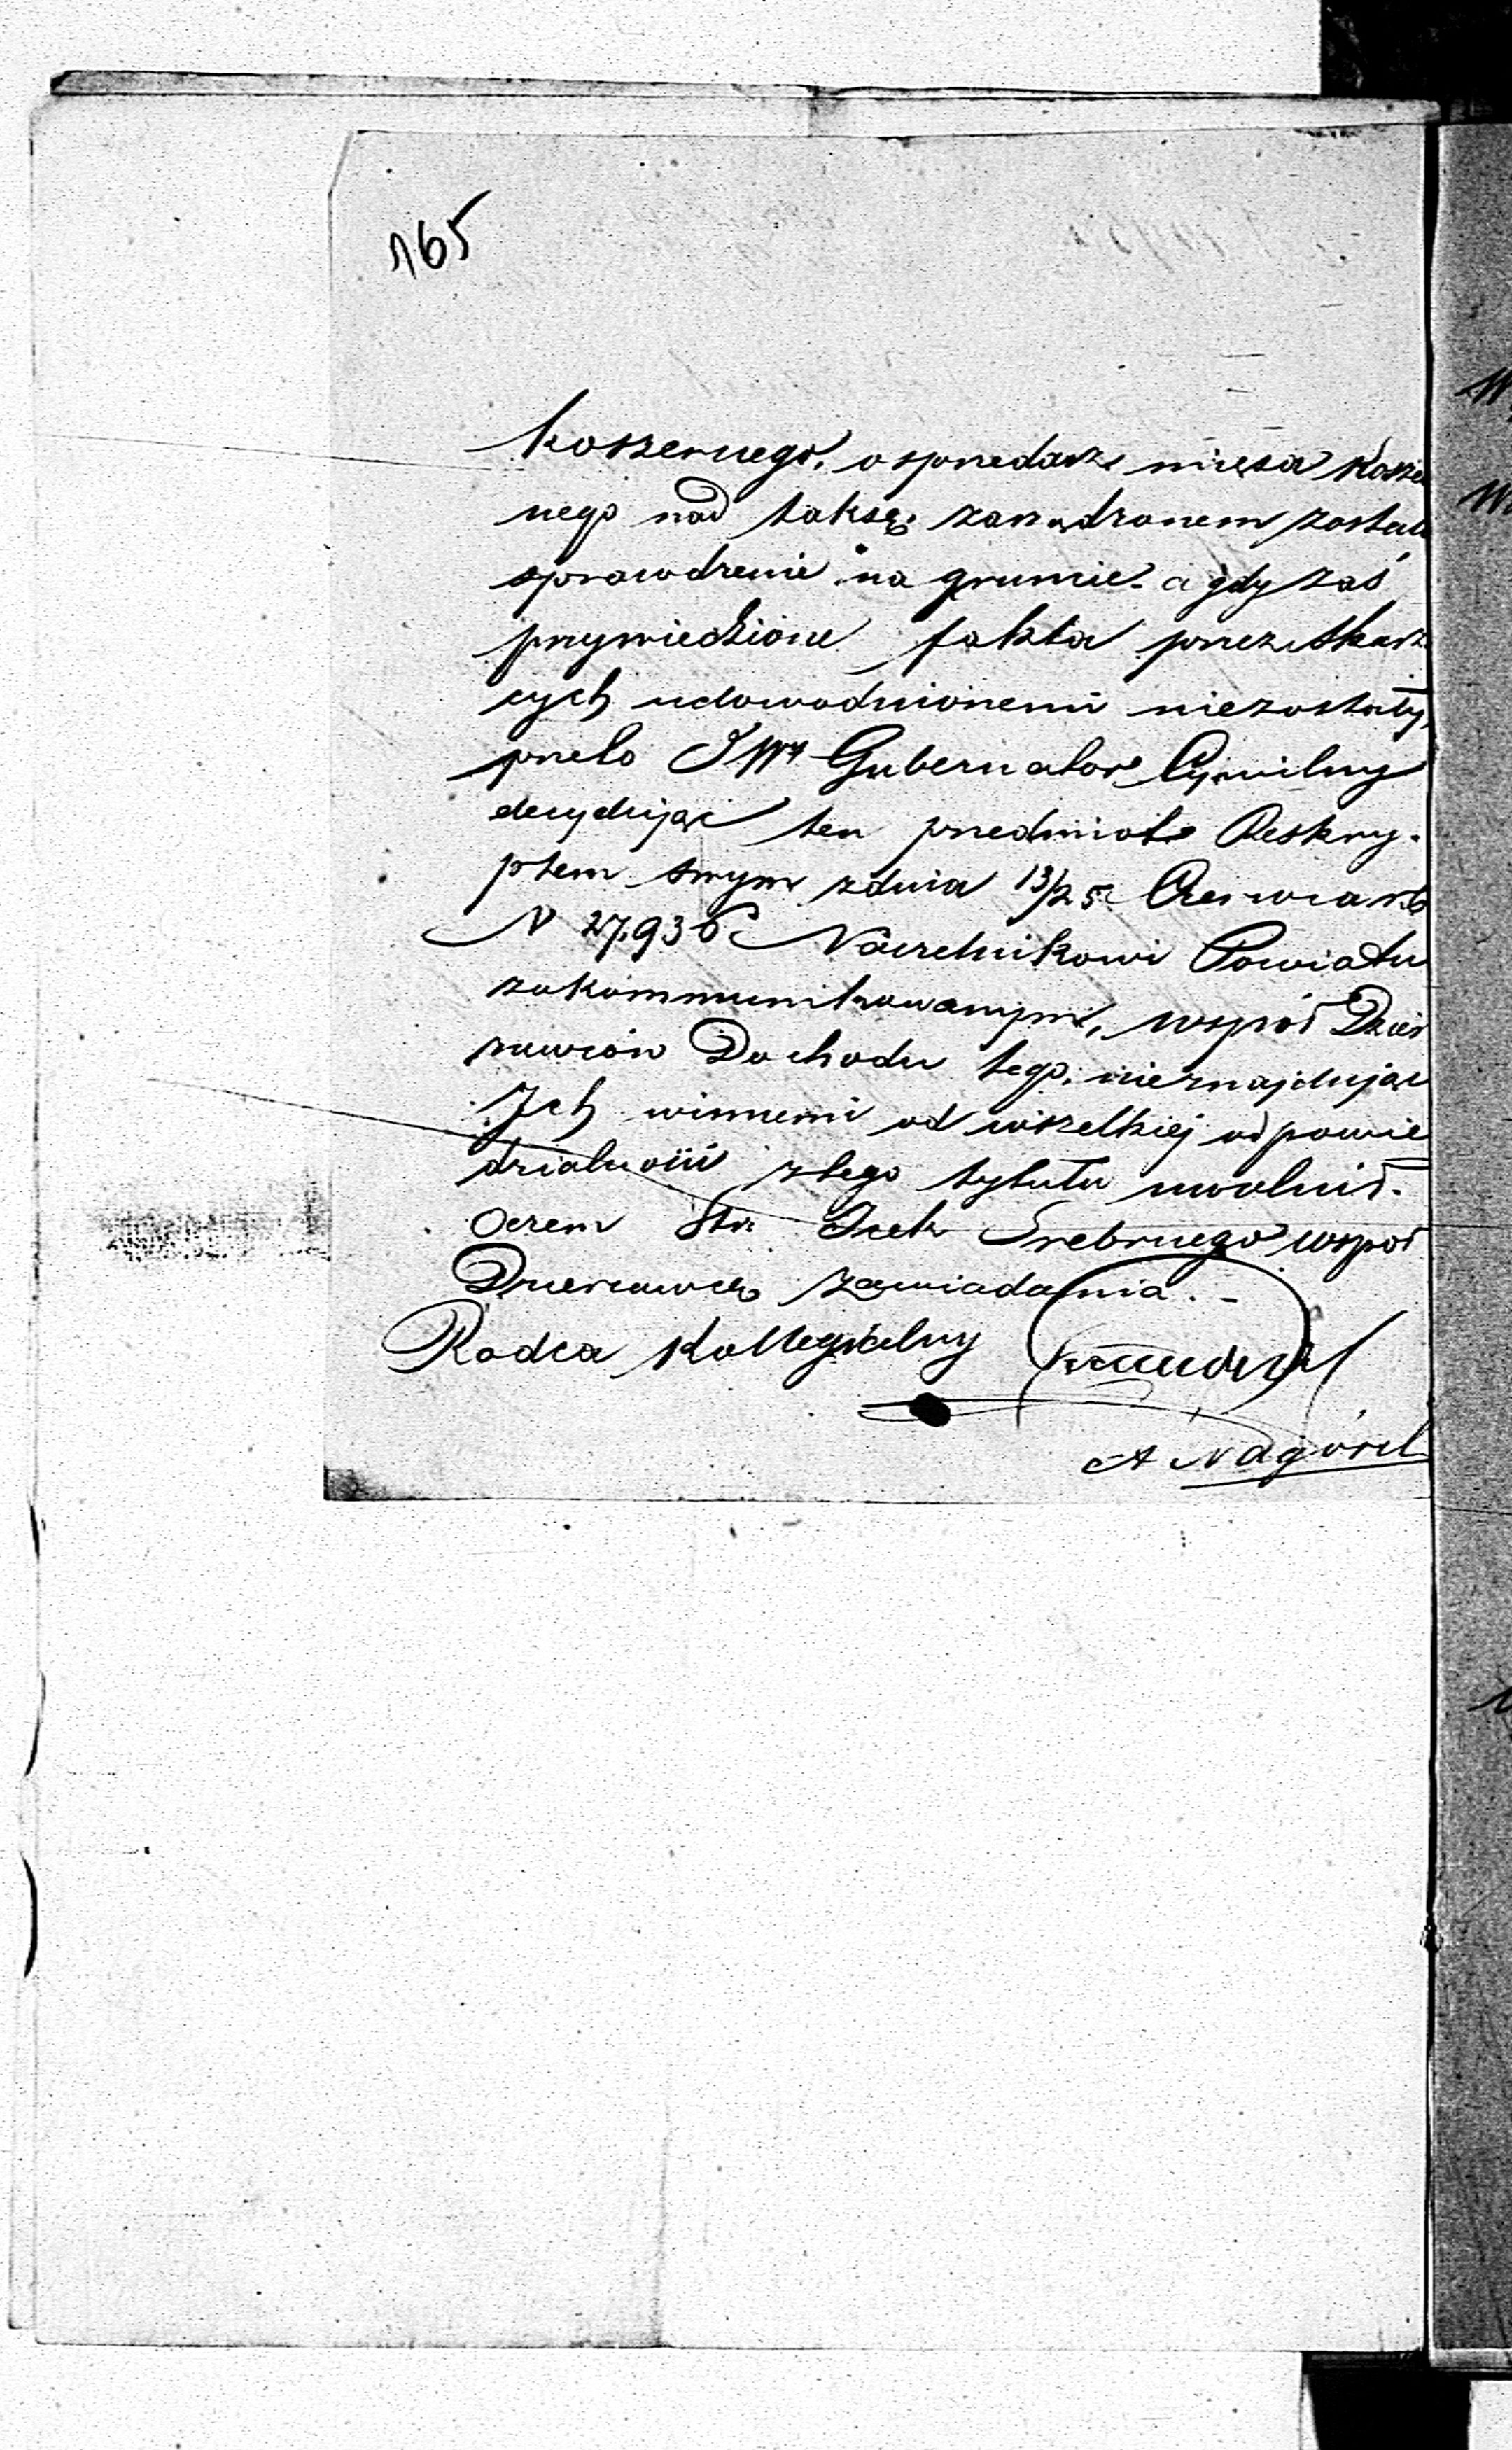 165
koszernego, o sprzedarz mięsa Kosze
nego nad taksę, zarządzonem zostało
sprawdzenie na gruncie. a gdy zaś
przywiedzione fakta przez skarż
cych udowodnionemi niezostały,
przeto JWy Gubernator Cywilny
decydując ten przedmiot Reskry-
ptem swym zdnia 13/25 Czerwca r. b
N 27.936 Naczelnikowi Powiatu
zakommunikowanym, wspoł Dzier
żawców Dochodu tego, nieznajdując
Jch winnemi od wszelkiej odpowie
dzialności ztego tytułu uwolnił.
Oczem Stz Icek Srebrnego wspoł
Dzierżawcę zawiadamia. -
Radca Kollegialny
A Nagórs